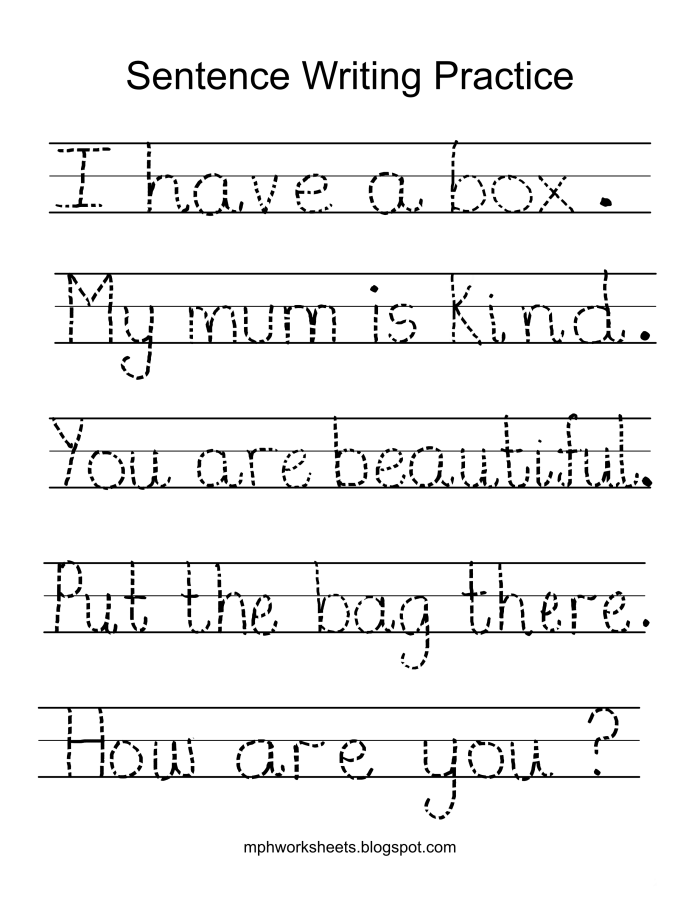 Sentence Writing Practice
I have a box.
My mum is kind.
You are beautiful.
Put the bag there.
How are you ?
mphworksheets.blogspot.com